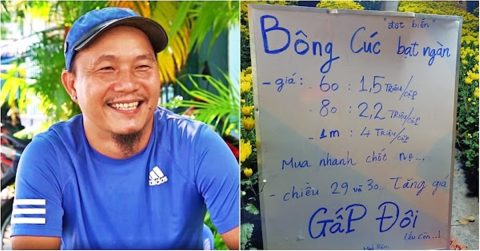 adidas
"đột biến"
Bông Cúc bạt ngàn
- giá : 60 : 1,5 Triệu/cặp
80 : 2,2 Triệu/cặp
- 1m : 4 Triệu/cặp
Mua nhanh chốt nẹ...
- chiều 29 và 30 Tăng giá
GẤP ĐÔI